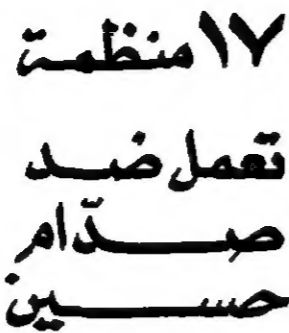 ١٧ منظمة
تعمل ضد
صدّام
حسين